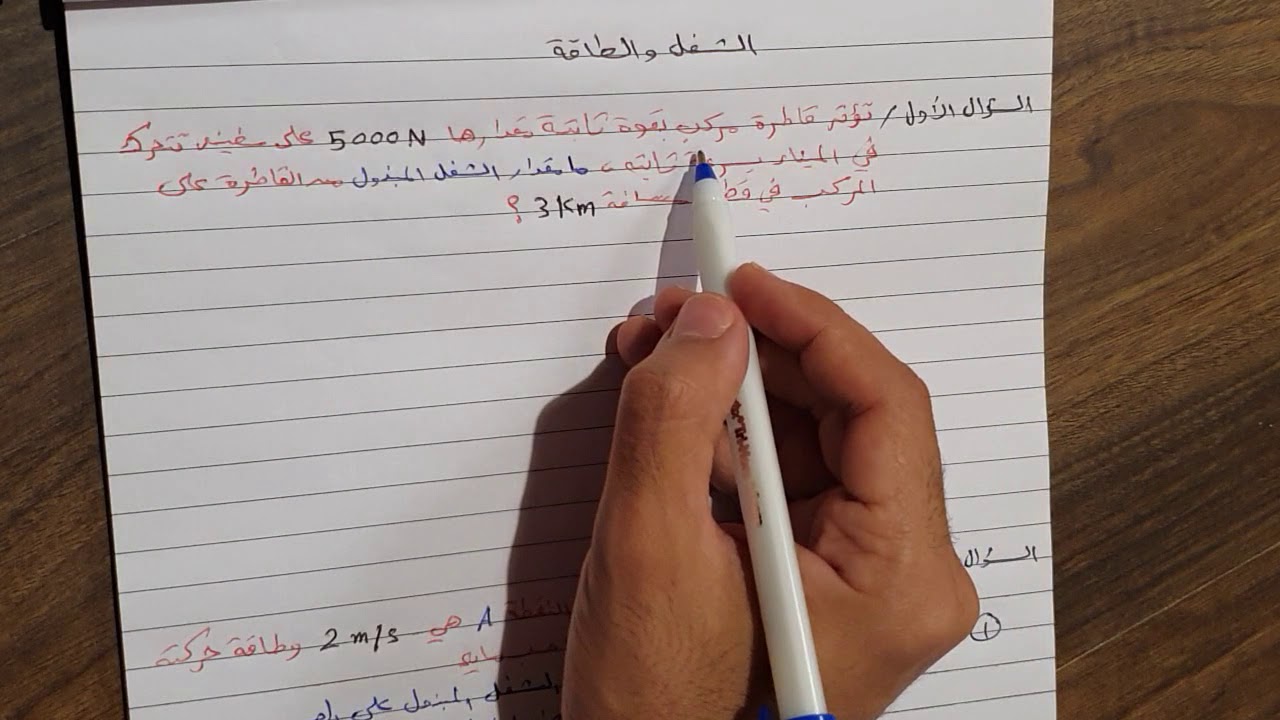 الشغل والطاقة
السؤال الأول / تؤثر قاطرة مركب بقوة ثابتة مقدارها 5000N على سفينه تتحرك
في الميناء ثابته، ما مقدار الشغل المبذول من القاطرة على
المركب في مسافة 3Km ؟
السؤال
① النقطة A هي 2 m/s وطاقة حركة
الشغل المبذول على